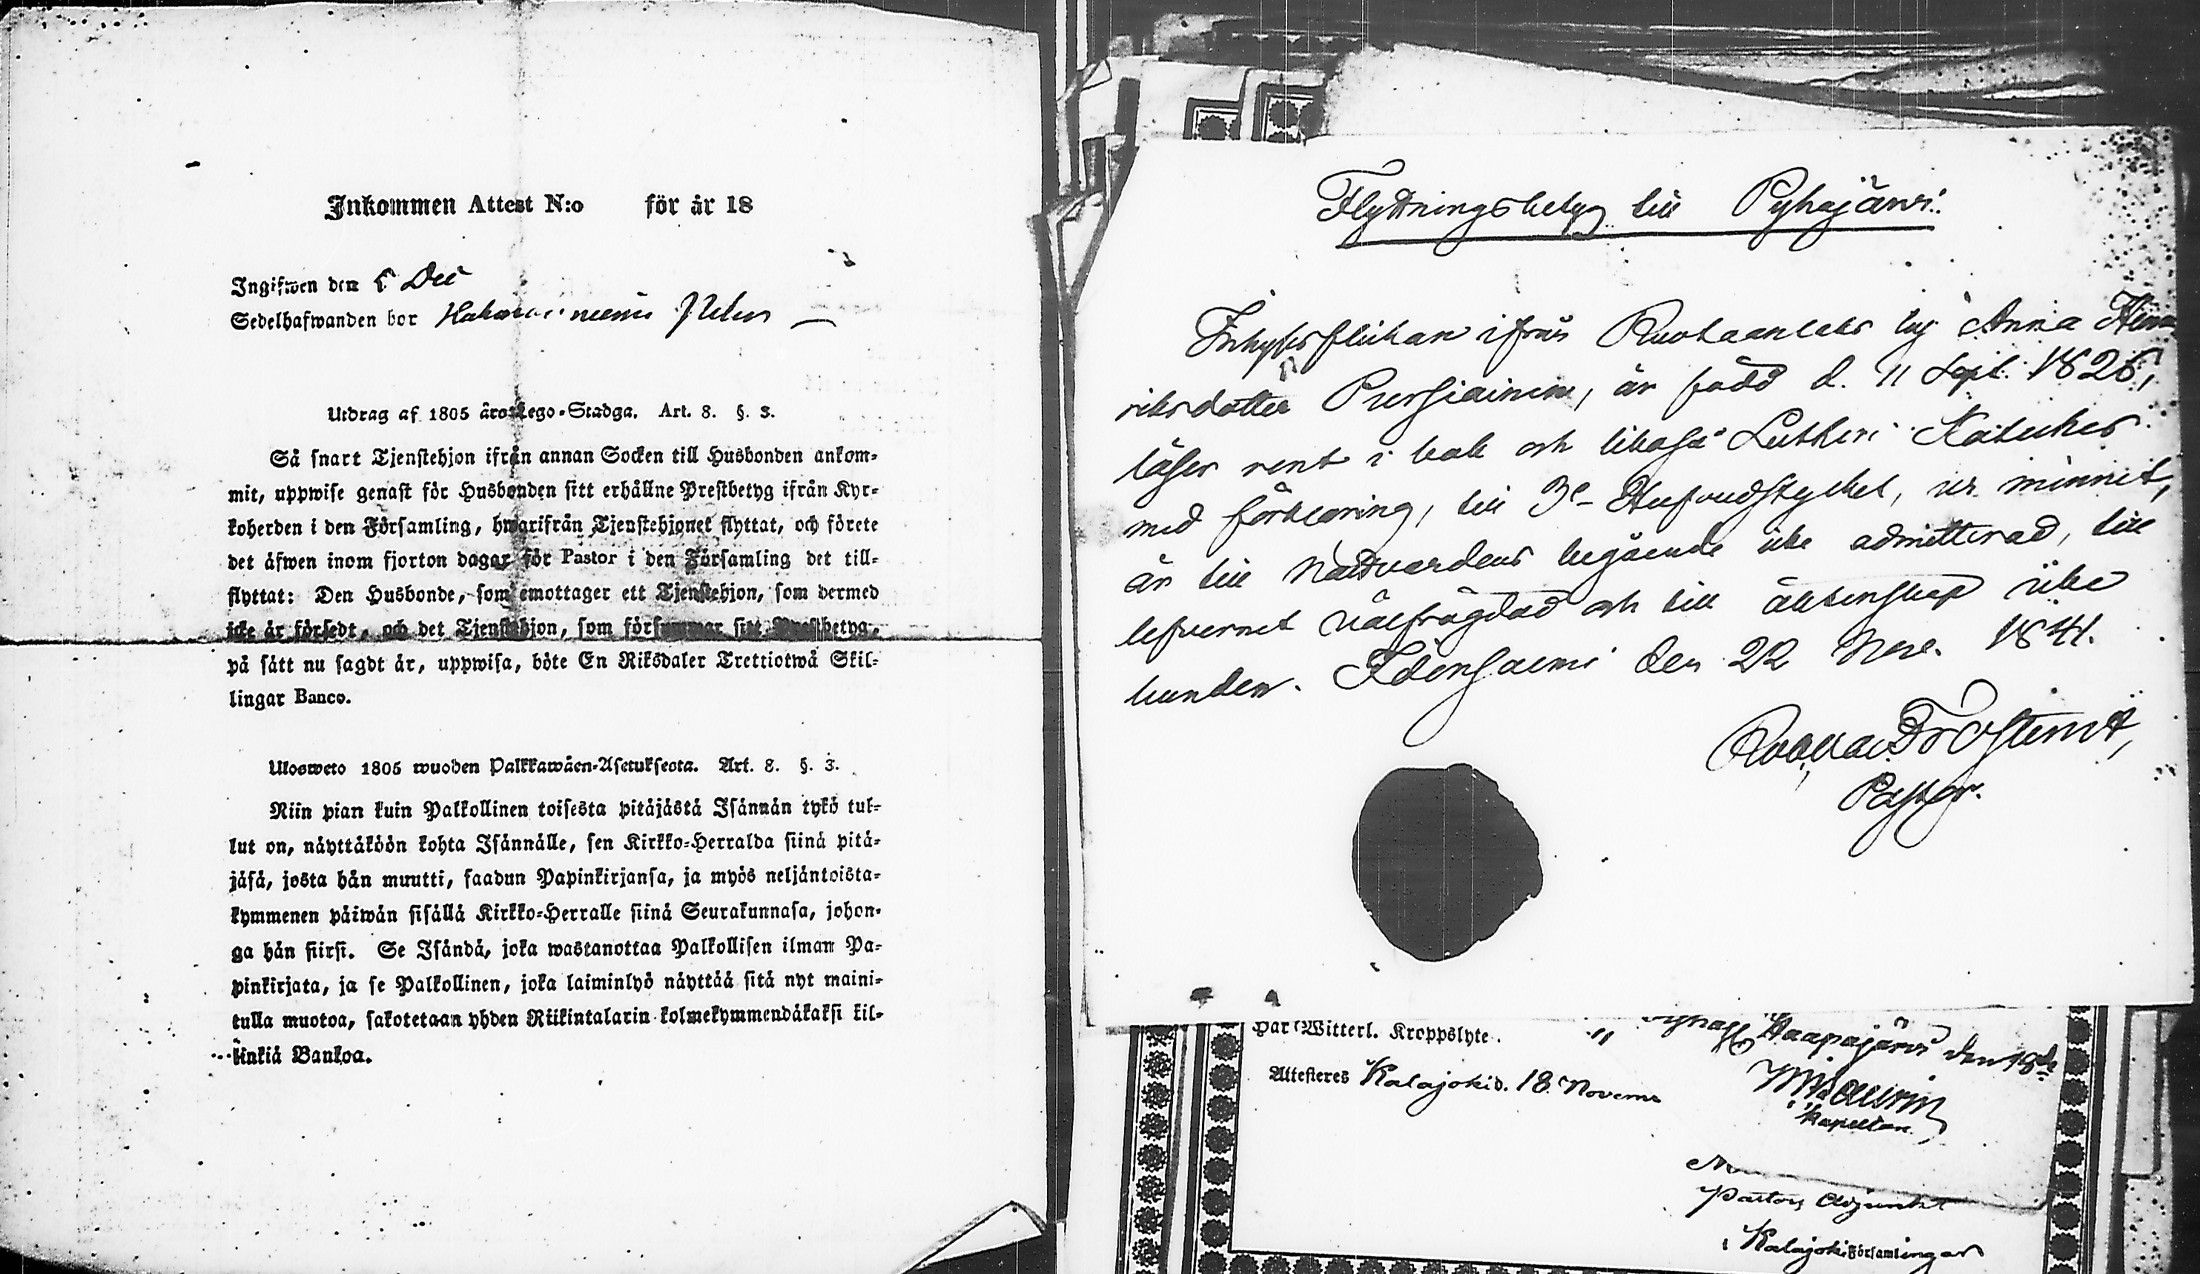 Inkommen Attest N:o för år 18
Ingifwen den 5 Dec
Sedelhafwanden bor
Utdrag af 1805 års Lego-Stadga. Art. 8. §. 3.
Så snart Tjenstehjon ifrån annan Socken till Husbonden ankom-
mit, uppwise genast för Husbonden sitt erhållne Prestbetyg ifrån Kyr-
koherden i den Församling, hwarifrån Tjenstehjonet flyttat, och förete
det äfwen inom fjorton dagar för Pastor i den Församling det till-
flyttat: Den Husbonde, som emottager ett Tjenstehjon, som dermed
icke är försedt, och det Tjenstehjon, som försummar sitt Prestbetyg,
på sätt nu sagdt är, uppwisa, böte En Riksdaler Trettiotwå Skil-
lingar Banco.
Uloosweto 1805 wuoden Palkkawäen-Asetuksesta. Art. 8. §. 3.
Niin pian kuin Palkollinen toisesta pitäjästä Isännän tykö tul-
lut on, näyttäköön kohta Isännälle, sen Kirkko-Herralda siinä pitä-
jäsä, josta hän muutti, saadun Papinkirjansa, ja myös neljäntoista-
kymmenen päiwän sisällä Kirkko-Herralle siinä Seurakunnasa, johon-
ga hän siirsi. Se Isändä, joka wastanottaa Palkollisen ilman Pa-
pinkirjata, ja se Palkollinen, joka laiminlyö näyttää sitä nyt maini-
tulla muotoa, sakotetaan yhden Riikintalarin kolmekymmendäkaksi kil-
linkiä Bankoa.
Flyttningsbetyg till Pyhajärvi.
Inhysesflickan ifrån by Anna Hen
riksdotter Pursiainen, är född d. 11 Sept. 1826,
läser rent i bok och likaså Lutheri Kateches
med förklaring, till 3e Hufvudstycket, ur minnet,
är till Nattvardens begående icke admitterad, till
lefvernet välfrägdad och till äktenskap icke
bunden. Idensalmi den 22 Nov. 1841.
Pastor.
Har Witterl. Kroppslyte.
Haapajärvi den 19de
Attesteres Kalajoki d. 18 Novem
Kapellan
Pastors Adjunkt
i Kalajoki Församlingar